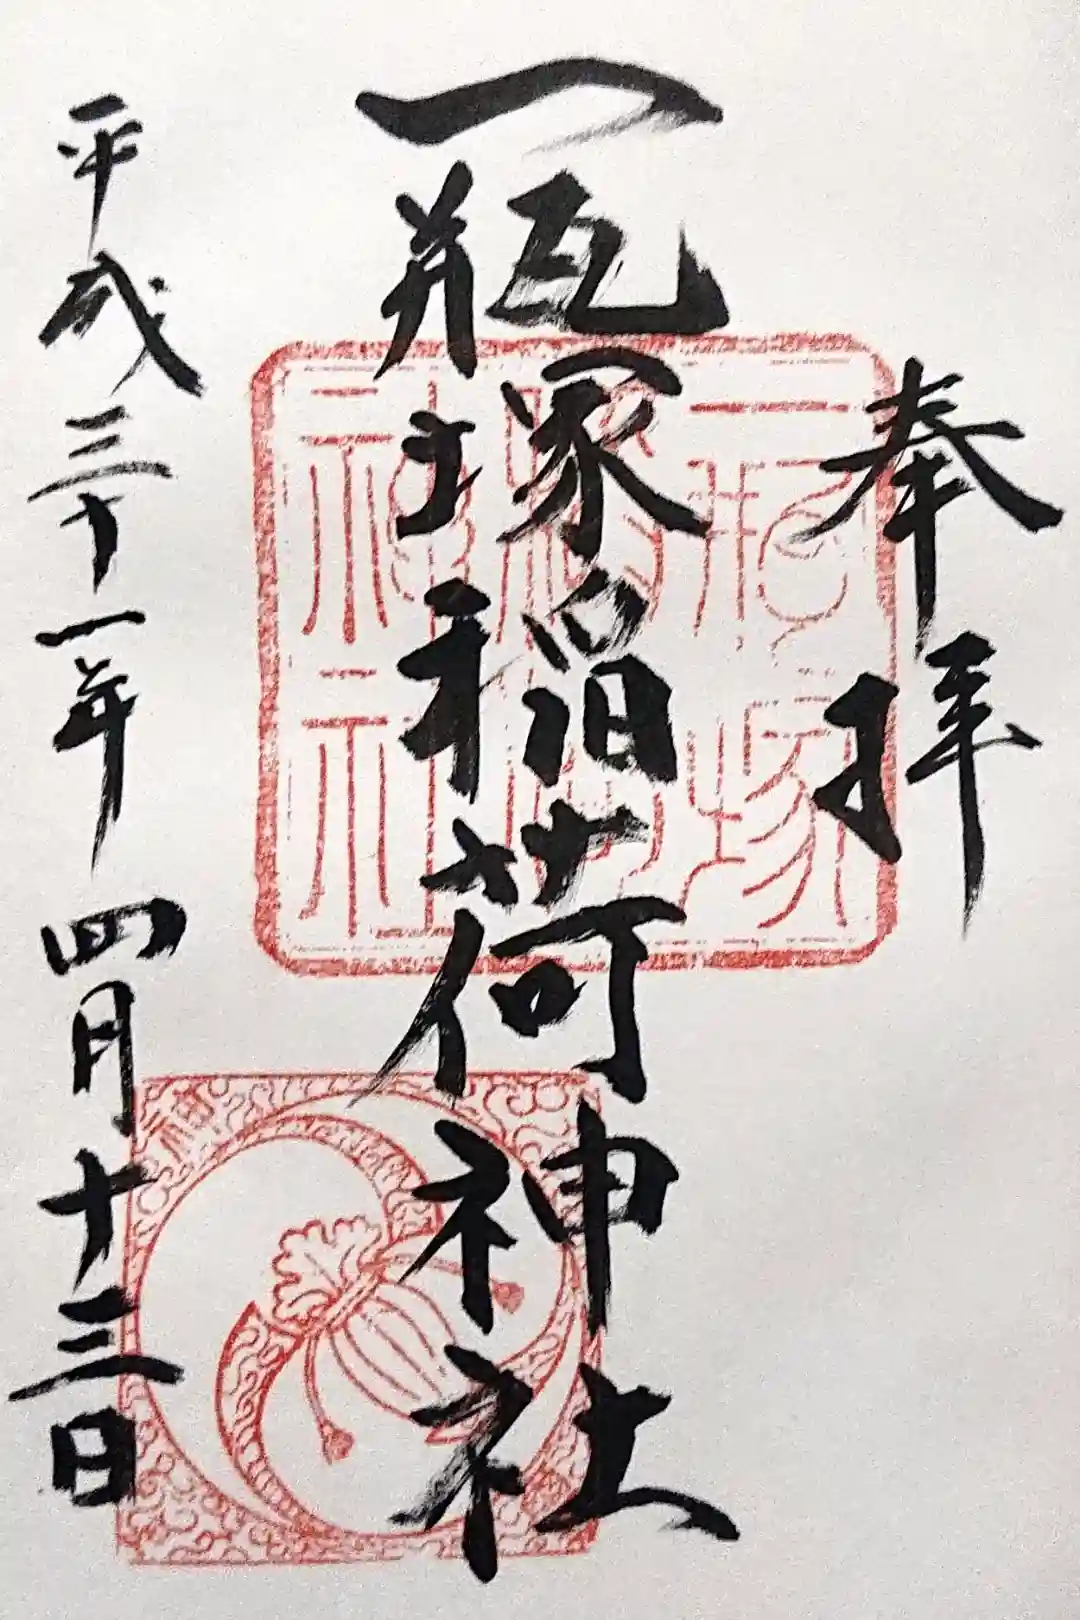 奉拝
一瓶塚稲荷神社
平成三十一年四月十三日
一瓶塚
稲荷
神社